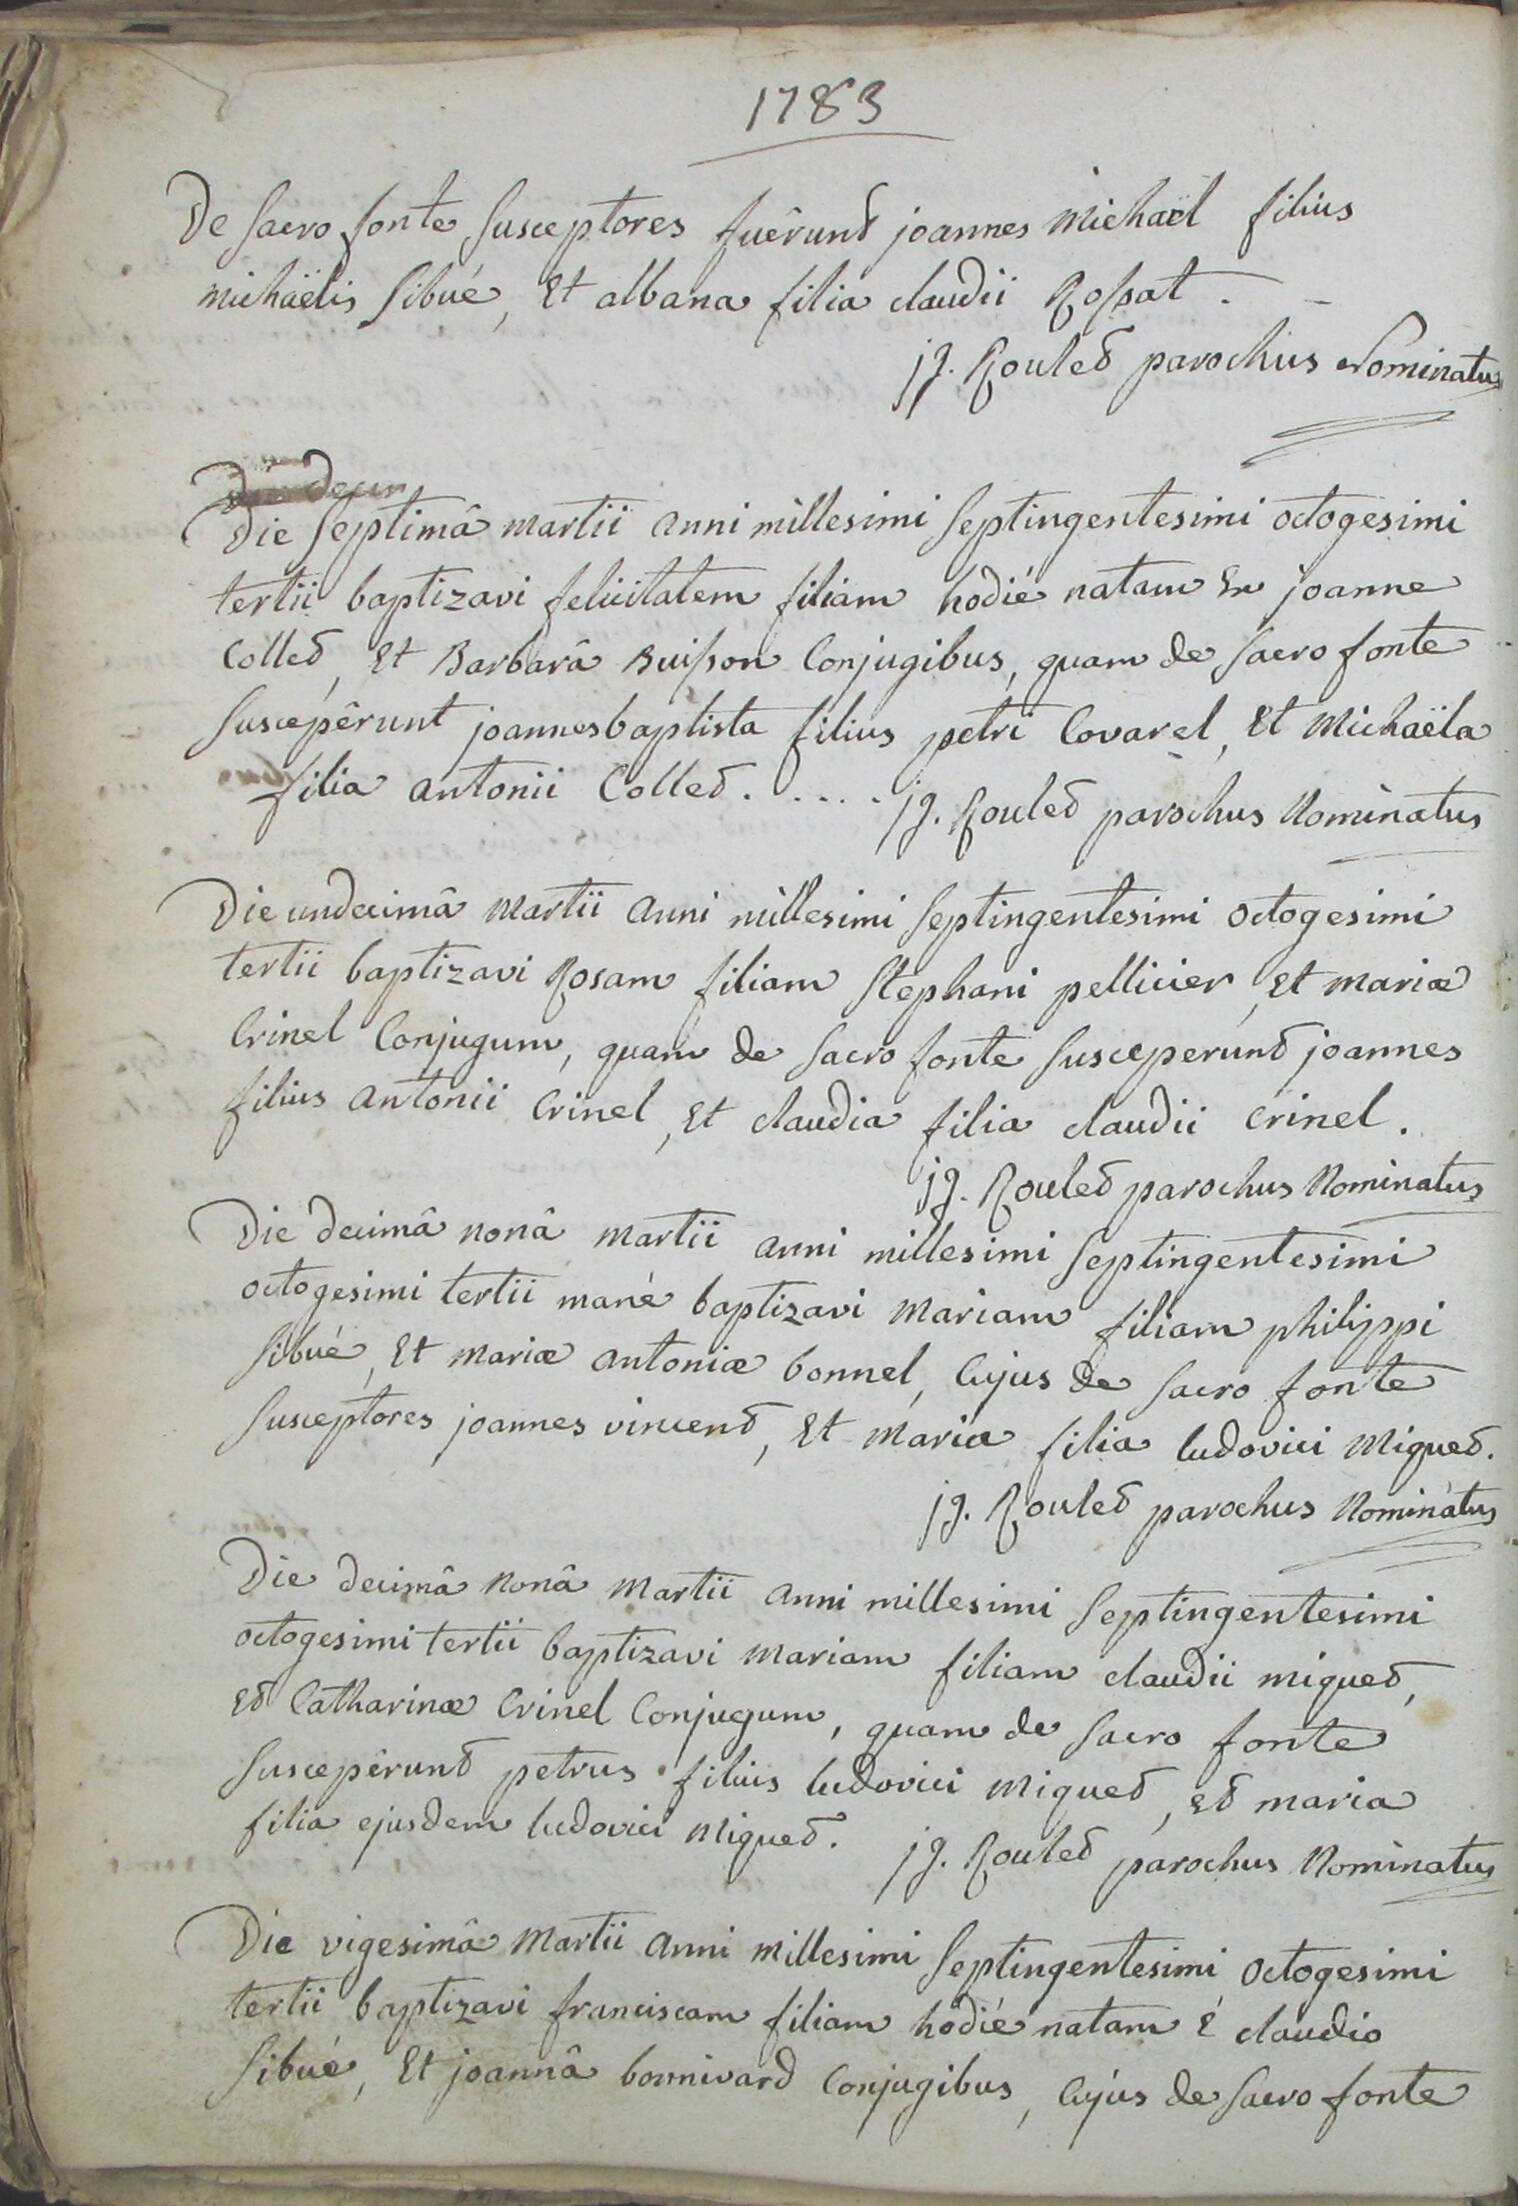 1783
De sacro fonte susceptores fuêrunt joannes michaël filius
michaëlis sibué, Et albana filia claudii Rossat.
jg. Roulet parochus Nominatus
Die septimâ martii anni millesimi septingentesimi octogesimi
tertii baptizavi felicitatem filiam hodiè natam Ex joanne
Collet, Et Barbarâ Buisson Conjugibus, quam de sacro fonte
suscepêrunt joannesbaptista filius petri Covarel, Et Michaëla
filia antonii Collet. . . . . jg. Roulet parochus Nominatus
Die undecimâ martii anni millesimi septingentesimi octogesimi
tertii baptizavi Rosam filiam stephani pellicier, Et mariæ
Crinel Conjugum, quam de sacro fonte susceperunt joannes
filius antonii Crinel, Et claudia filia claudii crinel.
jg. Roulet parochus Nominatus
Die decimâ nonâ martii anni millesimi septingentesimi
octogesimi tertii manè baptizavi mariam filiam philippi
sibué, Et mariæ antoniæ bonnel, Cujus de sacro fonte
susceptores joannes vincent, Et maria filia ludovici Miguet.
jg. Roulet parochus Nominatus
Die decimâ nonâ martii anni millesimi septingentesimi
octogesimi tertii baptizavi mariam filiam claudii miguet,
Et Catharinæ Crinel Conjugum, quam de sacro fonte
suscepêrunt petrus filius ludovici Miguet, Et maria
filia ejusdem ludovici Miguet. jg. Roulet parochus Nominatus
Die vigesimâ martii anni millesimi septingentesimi octogesimi
tertii baptizavi franciscam filiam hodiè natam è claudio
sibué, Et joannâ bonnivard Conjugibus, Cujus de sacro fonte